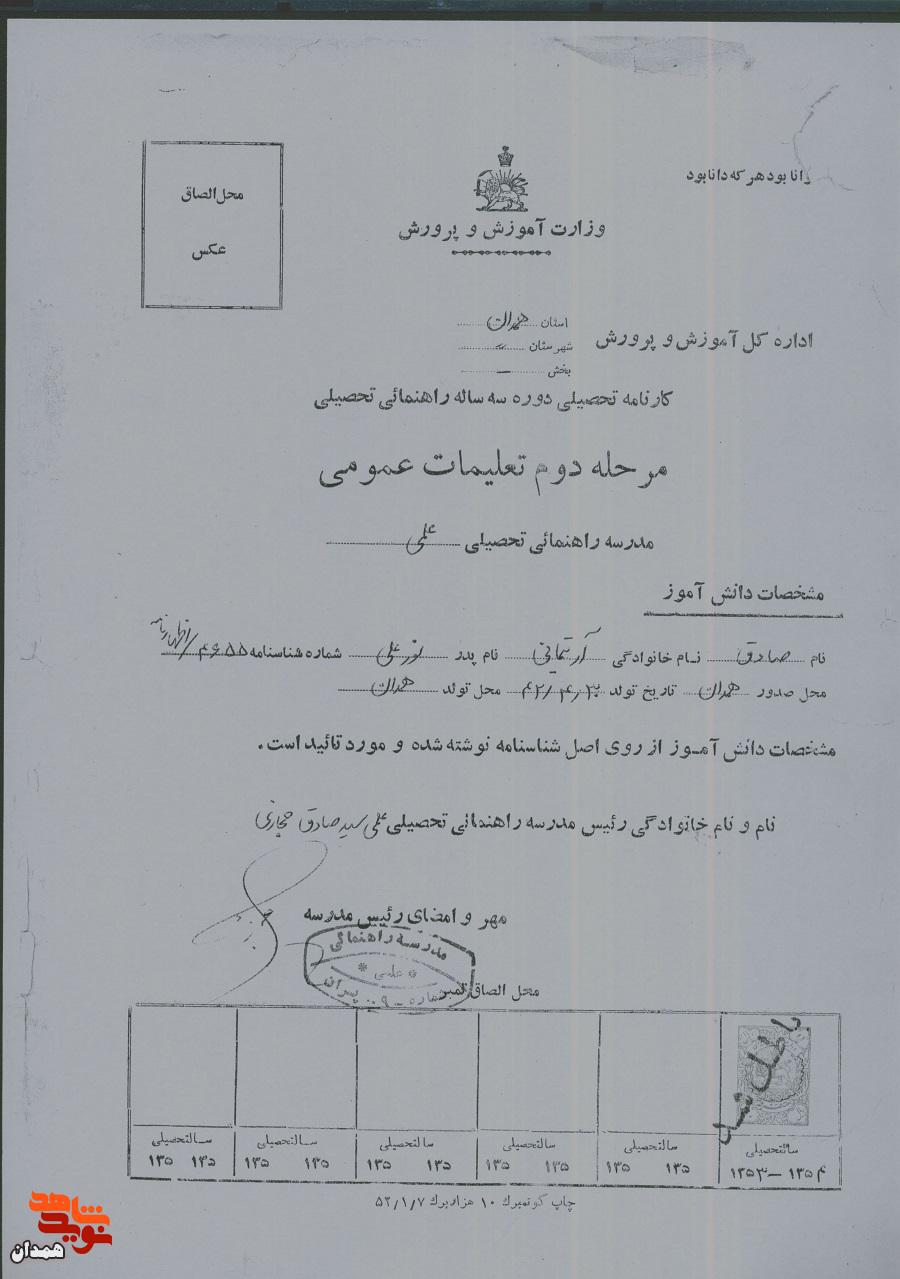 توانا بود هر که دانا بود
محل الصاق
عکس
وزارت آموزش و پرورش
اداره کل آموزش و پرورش
استان همدان
شهرستان "
بخش —
کارنامه تحصیلی دوره سه ساله راهنمائی تحصیلی
مرحله دوم تعلیمات عمومی
مدرسه راهنمائی تحصیلی علمی
مشخصات دانش آموز
نام صادق نام خانوادگی آرتیمانی نام پدر نورعلی شماره شناسنامه ۴۶۵۵ /اظهارنامه
محل صدور همدان تاریخ تولد ۴۲/۴/۲۰ محل تولد همدان
مشخصات دانش آموز از روی اصل شناسنامه نوشته شده و مورد تائید است.
نام و نام خانوادگی رئیس مدرسه راهنمائی تحصیلی علمی سید صادق حجازی
مهر و امضای رئیس مدرسه
مدرسه راهنمائی
* علمی *
پسران
شماره
محل الصاق تمبر
باطل شد
سالتحصیلی سالتحصیلی سالتحصیلی سالتحصیلی سالتحصیلی سالتحصیلی
۱۳۵۴ – ۱۳۵۳ ۱۳۵ ۱۳۵ ۱۳۵ ۱۳۵ ۱۳۵ ۱۳۵ ۱۳۵ ۱۳۵ ۱۳۵ ۱۳۵
چاپ گوتمبرک ۱۰ هزار برک ۵۲/۱/۷
نوید شاهد
همدان